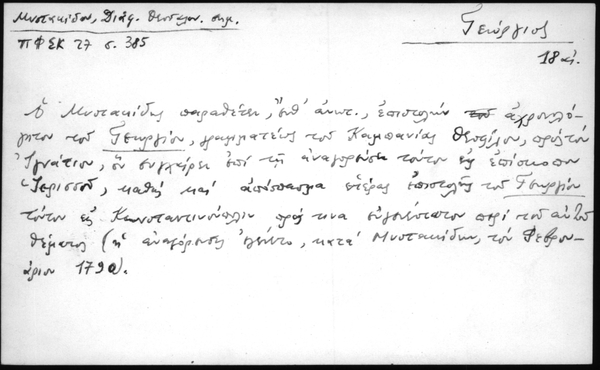 Μυστακίδου, Διάφ. Θεσσαλον. σημ.
ΠΦΣΚ 27 σ. 385
Γεώργιος
18 αἰ.
Ὁ Μυστακίδης παραθέτει, ἔνθ' ἀνωτ., ἐπιστολὴν ἀχρονολό-
γητον τοῦ Γεωργίου, γραμματέως τοῦ Καμπανίας Θεοφίλου, πρὸς τὸν
Ἰγνάτιον, ὃν συγχαίρει ἐπὶ τῇ ἀναγορήσει τούτου εἰς ἐπίσκοπον
Ἱερισσοῦ, καθὼς καὶ ἀπόσπασμα ἑτέρας ἐπιστολῆς τοῦ Γεωργίου
τούτου εἰς Κωνσταντινούπολιν πρός τινα εὐγενέστατον περὶ τοῦ αὐτοῦ
θέματος (ἡ ἀναγόρησις ἐγένετο, κατὰ Μυστακίδην, τὸν Φεβρου-
άριον 1790).